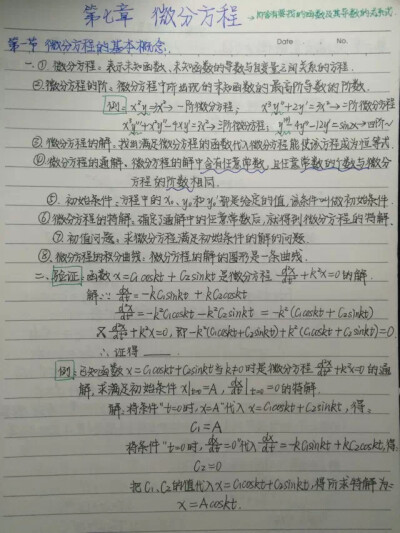 第七章 微分方程
→即含有要找的函数及其导数的关系式
第一节 微分方程的基本概念.
Date No.
一.① 微分方程：表示未知函数、未知函数的导数与自变量之间关系的方程.
②.微分方程的阶：微分方程中所出现的未知函数的最高阶导数的阶数.
例：x³y'=3x²→一阶微分方程； x³y''+2y'=3x²→二阶微分方程
x³y'''+x²y''-4xy'=3x²→三阶微分方程； y⁽⁴⁾-4y'''-12y'=sin2x→四阶~
③ 微分方程的解：找出满足微分方程的函数代入微分方程能使该方程成为恒等式.
④ 微分方程的通解：微分方程的解中含有任意常数，且任意常数的个数与微分
方程的阶数相同.
⑤. 初始条件：方程中的x₀、y₀和y₀'都是给定的值，该条件叫做初始条件.
⑥ 微分方程的特解：确定通解中的任意常数后，就得到微分方程的特解.
⑦ 初值问题：求微分方程满足初始条件的解的问题.
⑧. 微分方程的积分曲线：微分方程的解的图形是一条曲线.
二、验证：函数x=C₁coskt+C₂sinkt是微分方程 d²x/dt²+k²x=0的解.
解：∵ dx/dt=-kC₁sinkt+kC₂coskt
d²x/dt²=-k²C₁coskt-k²C₂sinkt=-k²(C₁coskt+C₂sinkt)
又 d²x/dt²+k²x=0，即-k²(C₁coskt+C₂sinkt)+k²(C₁coskt+C₂sinkt)=0
∴ 证得
例：已知函数x=C₁coskt+C₂sinkt当k≠0时是微分方程 d²x/dt²+k²x=0的通
解，求满足初始条件 x|t=0=A，dx/dt|t=0=0的特解.
解：将条件"t=0时，x=A"代入x=C₁coskt+C₂sinkt，得。
C₁=A
将条件"t=0时，dx/dt=0"代入 dx/dt=-kC₁sinkt+kC₂coskt，得.
C₂=0
把C₁、C₂的值代入x=C₁coskt+C₂sinkt，得所求特解为：
x=Acoskt.